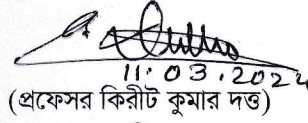 11.03.2024
(প্রফেসর কিরীট কুমার দত্ত)